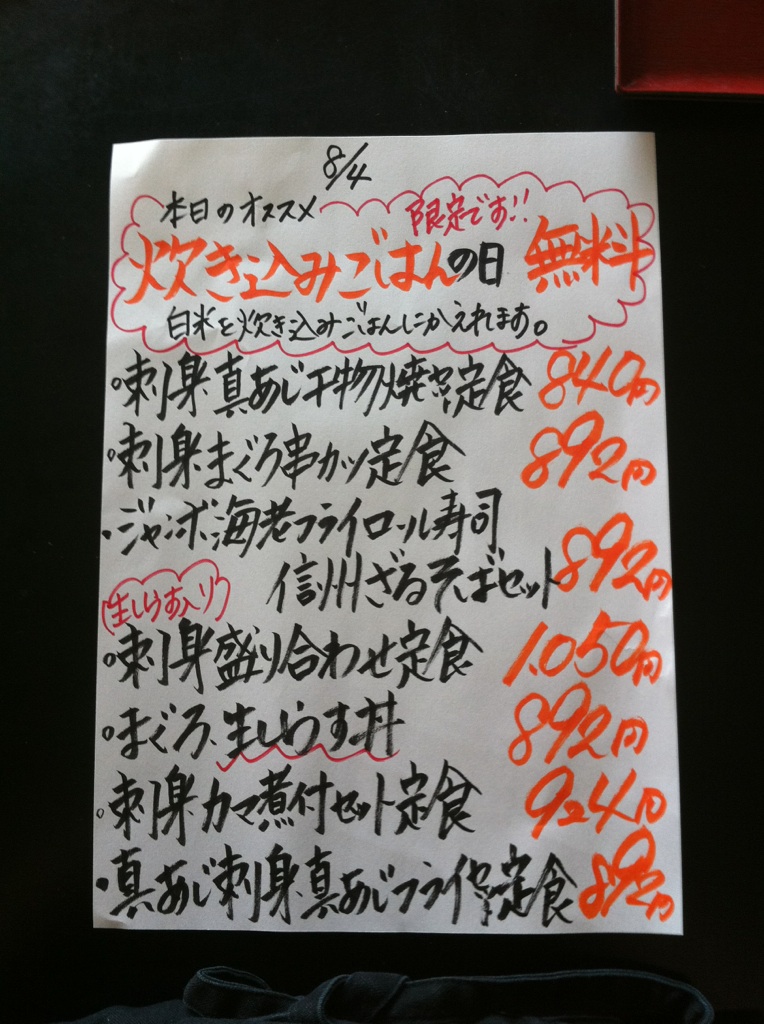 8/4
本日のオススメ 限定です!!
炊き込みごはんの日 無料
白米を炊き込みごはんにかえれます。
・刺身、真あじ干物焼き定食 840円
・刺身、まぐろ串カツ定食 892円
・ジャンボ海老フライロール寿司
信州ざるそばセット 892円
(生しらす入り)
・刺身盛り合わせ定食 1.050円
・まぐろ、生しらす丼 892円
・刺身、カマ煮付セット定食 924円
・真あじ刺身、真あじフライ定食 892円